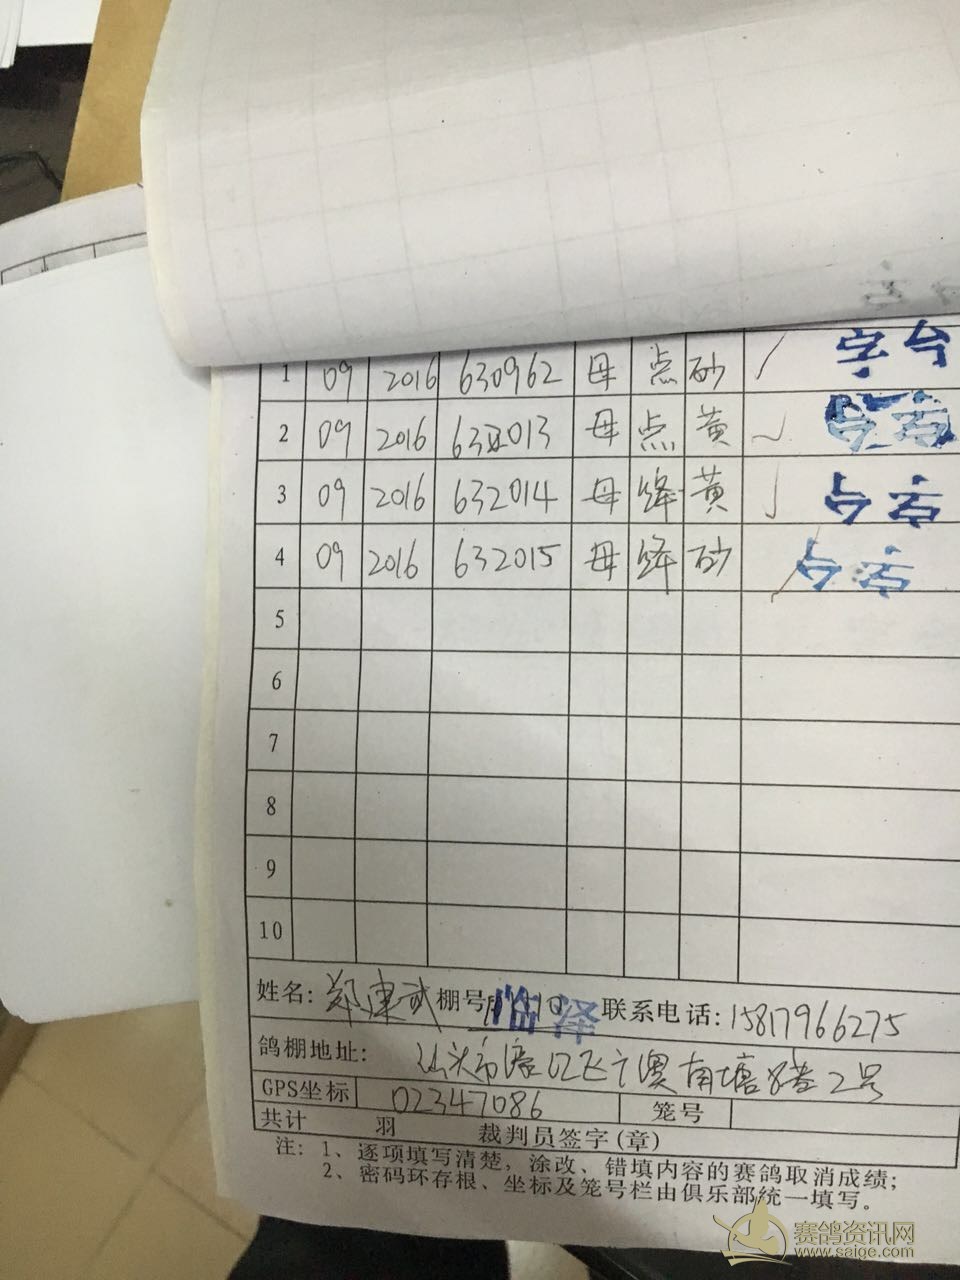 1 09 2016 630962 母 点 砂 ✓
2 09 2016 632013 母 点 黄 ✓
3 09 2016 632014 母 绛 黄 ✓
4 09 2016 632015 母 绛 砂
5
6
7
8
9
10
姓名: 郑 武 棚号 临泽 联系电话: 15817966275
鸽棚地址: 汕头市濠 澳南塘 2号
GPS坐标 02347086 笼号
共计 羽 裁判员签字(章)
注: 1、逐项填写清楚,涂改、错填内容的赛鸽取消成绩;
2、密码环存根、坐标及笼号栏由俱乐部统一填写。
赛鸽资讯网
www.saige.com